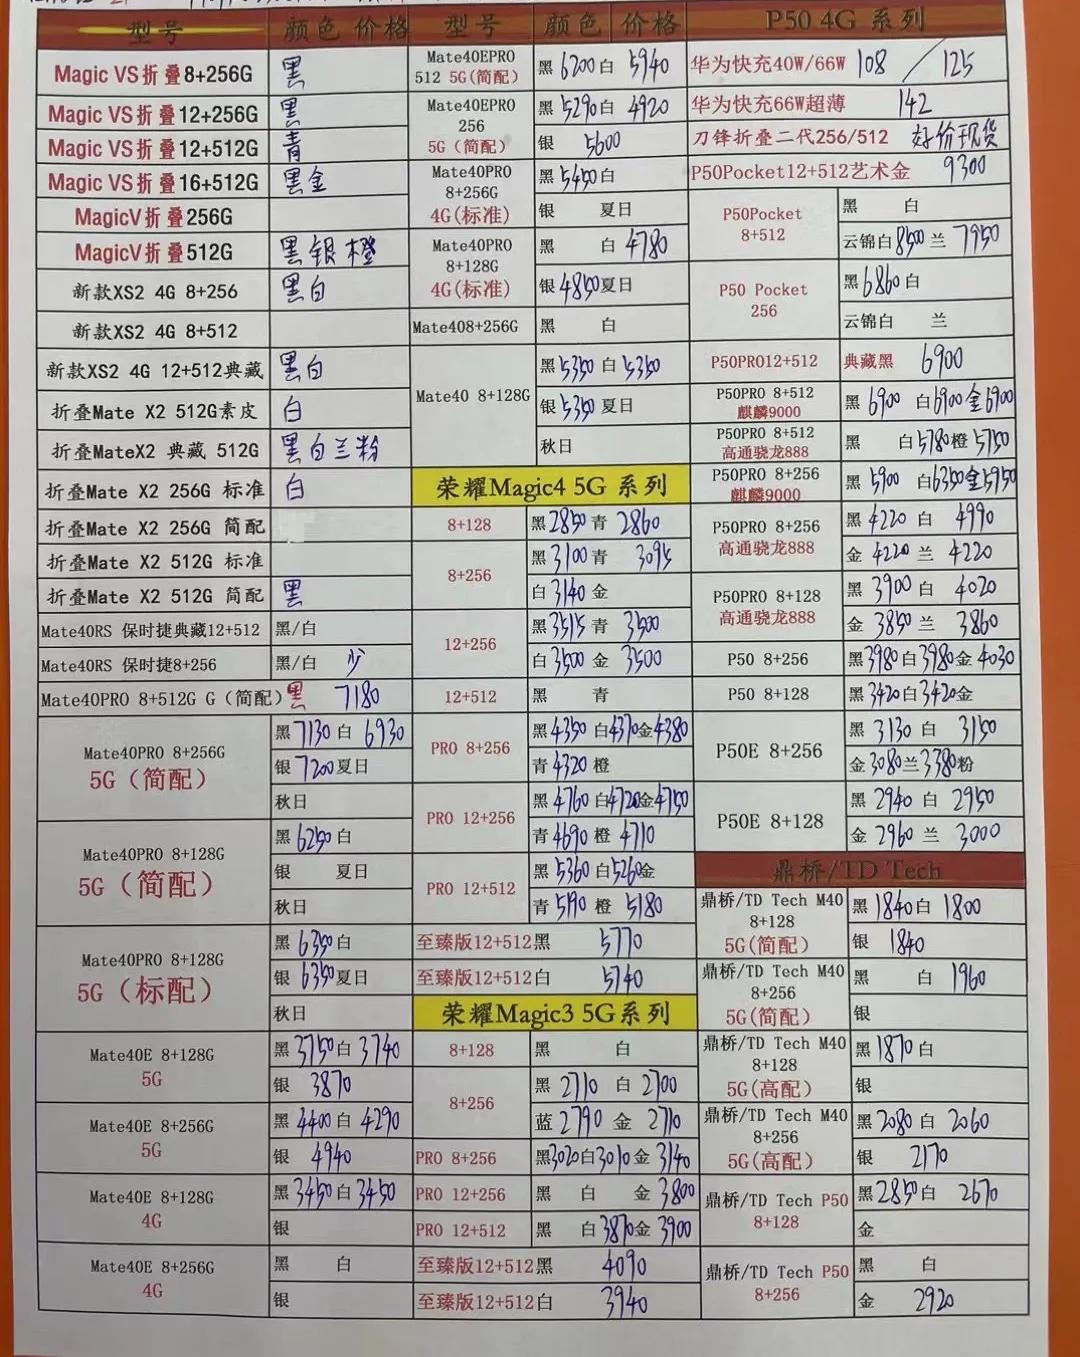 型号 颜色 价格
Magic VS折叠8+256G 黑
Magic VS折叠12+256G 黑
Magic VS折叠12+512G 青
Magic VS折叠16+512G 黑金
MagicV折叠256G
MagicV折叠512G 黑银橙
新款XS2 4G 8+256 黑白
新款XS2 4G 8+512
新款XS2 4G 12+512典藏 黑白
折叠Mate X2 512G素皮 白
折叠MateX2 典藏 512G 黑白兰粉
折叠Mate X2 256G 标准 白
折叠Mate X2 256G 简配
折叠Mate X2 512G 标准
折叠Mate X2 512G 简配 黑
Mate40RS 保时捷典藏12+512 黑/白
Mate40RS 保时捷8+256 黑/白 少
Mate40PRO 8+512G G（简配） 黑 7180
Mate40PRO 8+256G
5G（简配）
黑 7130 白 6930
银 7200 夏日
秋日
Mate40PRO 8+128G
5G（简配）
黑 6250 白
银 夏日
秋日
Mate40PRO 8+128G
5G（标配）
黑 6350 白
银 6350 夏日
秋日
Mate40E 8+128G
5G
黑 3750 白 3740
银 3870
Mate40E 8+256G
5G
黑 4400 白 4290
银 4940
Mate40E 8+128G
4G
黑 3450 白 3450
银
Mate40E 8+256G
4G
黑 白
银
型号 颜色 价格
Mate40EPRO
512 5G(简配)
黑 6200 白 5940
Mate40EPRO
256
5G（简配）
黑 5290 白 4920
银 5600
Mate40PRO
8+256G
4G(标准)
黑 5450 白
银 夏日
Mate40PRO
8+128G
4G(标准)
黑 白 4780
银 4850 夏日
Mate408+256G 黑 白
Mate40 8+128G
黑 5350 白 5350
银 5350 夏日
秋日
荣耀Magic4 5G 系列
8+128 黑 2850 青 2860
8+256
黑 3100 青 3095
白 3140 金
12+256
黑 3515 青 3500
白 3500 金 3500
12+512 黑 青
PRO 8+256
黑 4350 白 4370 金 4380
青 4320 橙
PRO 12+256
黑 4760 白 4720 金 4750
青 4690 橙 4710
PRO 12+512
黑 5360 白 5260 金
青 5190 橙 5180
至臻版12+512黑 5770
至臻版12+512白 5740
荣耀Magic3 5G系列
8+128 黑 白
8+256
黑 2710 白 2700
蓝 2790 金 2710
PRO 8+256 黑 3020 白 3010 金 3140
PRO 12+256 黑 白 金 3800
PRO 12+512 黑 白 3870 金 3900
至臻版12+512黑 4090
至臻版12+512白 3940
P50 4G 系列
华为快充40W/66W 108 / 125
华为快充66W超薄 142
刀锋折叠二代256/512 好价现货
P50Pocket12+512艺术金 9300
P50Pocket
8+512
黑 白
云锦白 8500 兰 7950
P50 Pocket
256
黑 6860 白
云锦白 兰
P50PRO12+512 典藏黑 6900
P50PRO 8+512
麒麟9000
黑 6900 白 6900 金 6900
P50PRO 8+512
高通骁龙888
黑 白 5780 橙 5750
P50PRO 8+256
麒麟9000
黑 5900 白 6350 金 5950
P50PRO 8+256
高通骁龙888
黑 4220 白 4990
金 4220 兰 4220
P50PRO 8+128
高通骁龙888
黑 3900 白 4020
金 3850 兰 3860
P50 8+256 黑 3980 白 3980 金 4030
P50 8+128 黑 3420 白 3420 金
P50E 8+256
黑 3130 白 3150
金 3080 兰 3380 粉
P50E 8+128
黑 2940 白 2950
金 2960 兰 3000
鼎桥/TD Tech
鼎桥/TD Tech M40
8+128
5G(简配)
黑 1840 白 1800
银 1840
鼎桥/TD Tech M40
8+256
5G(简配)
黑 白 1960
银
鼎桥/TD Tech M40
8+128
5G(高配)
黑 1870 白
银
鼎桥/TD Tech M40
8+256
5G(高配)
黑 2080 白 2060
银 2170
鼎桥/TD Tech P50
8+128
黑 2850 白 2670
金
鼎桥/TD Tech P50
8+256
黑 白
金 2920